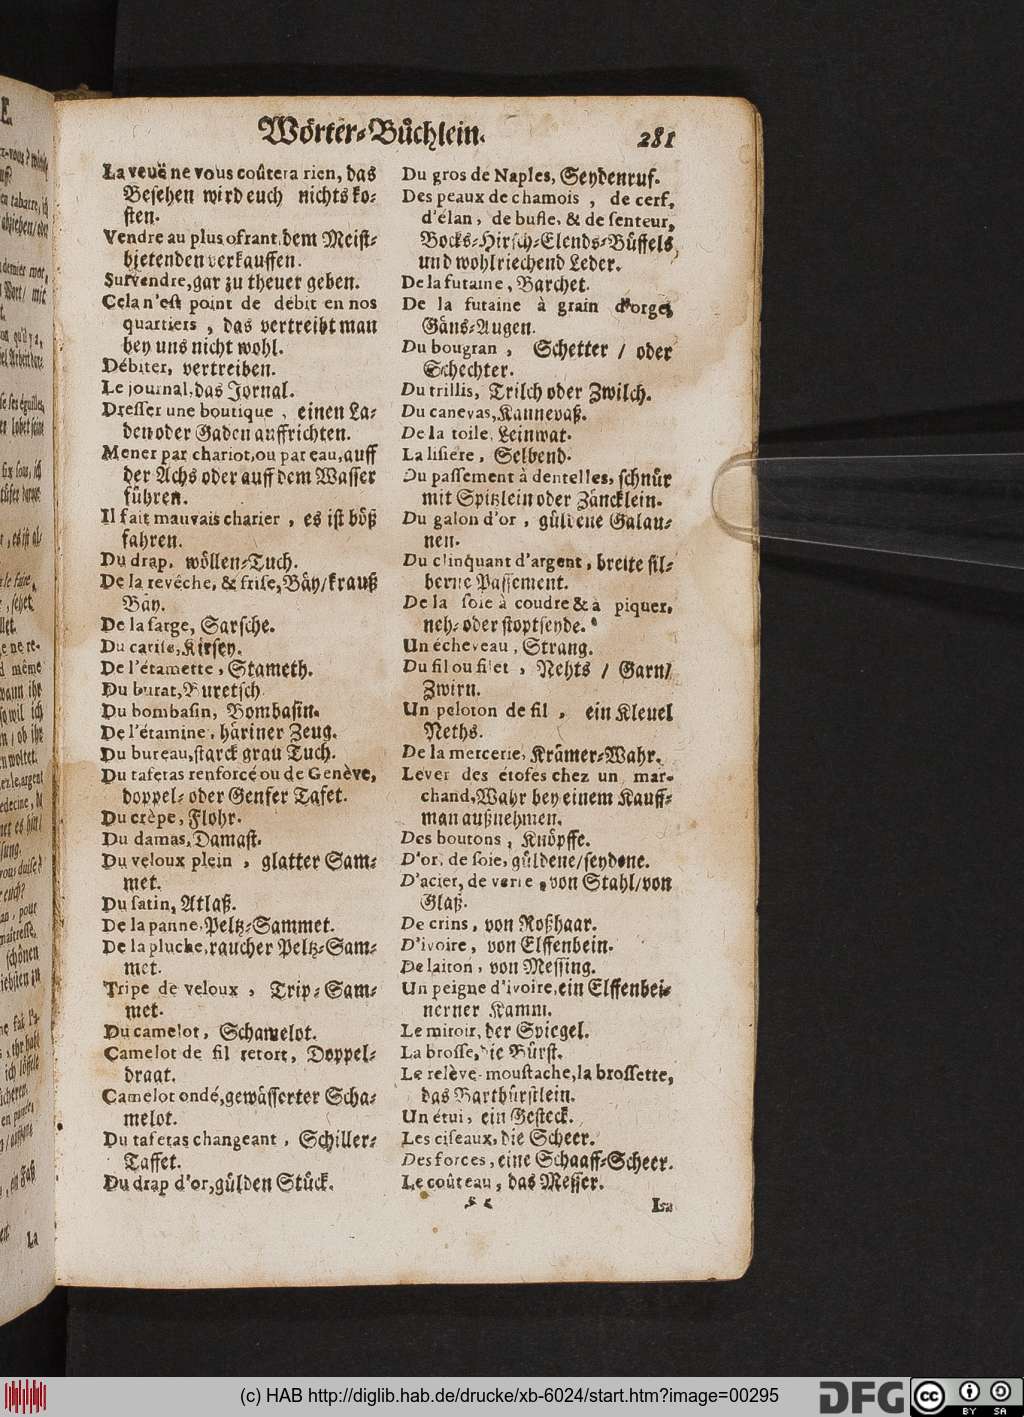 Wörter-Büchlein.
281
La veuë ne vous coûtera rien, das
Besehen wird euch nichts ko-
sten.
Vendre au plus ofrant, dem Meist-
bietenden verkauffen.
Survendre, gar zu theuer geben.
Cela n'est point de débit en nos
quartiers, das vertreibt man
bey uns nicht wohl.
Débiter, vertreiben.
Le journal, das Jornal.
Dresser une boutique, einen La-
den oder Gaden auffrichten.
Mener par chariot, ou par eau, auff
der Achs oder auff dem Wasser
führen.
Il fait mauvais charier, es ist böß
fahren.
Du drap, wöllen-Tuch.
De la revêche, & frise, Bäy/krauß
Bäy.
De la sarge, Sarsche.
Du carisé, Kirsey.
De l'étamette, Stameth.
Du burat, Buretsch
Du bombasin, Bombasin.
De l'étamine, häriner Zeug.
Du bureau, starck grau Tuch.
Du tafetas renforcé ou de Genève,
doppel- oder Genfer Tafet.
Du crêpe, Flohr.
Du damas, Damast.
Du veloux plein, glatter Sam-
met.
Du satin, Atlaß.
De la panne, Peltz-Sammet.
De la pluche, raucher Peltz-Sam-
met.
Tripe de veloux, Trip-Sam-
met.
Du camelot, Schamelot.
Camelot de fil retort, Doppel-
draat.
Camelot ondé, gewässerter Scha-
melot.
Du tafetas changeant, Schiller-
Taffet.
Du drap d'or, gülden Stück.
Du gros de Naples, Seydenruf.
Des peaux de chamois, de cerf,
d'élan, de bufle, & de senteur,
Bocks-Hirsch-Elends-Büffels
und wohlriechend Leder.
De la futaine, Barchet.
De la futaine à grain d'orge,
Gäns-Augen.
Du bougran, Schetter / oder
Schechter.
Du trillis, Trilch oder Zwilch.
Du canevas, Kannevaß.
De la toile, Leinwat.
La lisiere, Selbend.
Du passement à dentelles, schnür
mit Spitzlein oder Zäncklein.
Du galon d'or, güldene Galau-
nen.
Du clinquant d'argent, breite sil-
berne Passement.
De la soie à coudre & à piquer,
neh- oder stoptseyde.
Un écheveau, Strang.
Du fil ou filet, Nehts / Garn/
Zwirn.
Un peloton de fil, ein Kleuel
Neths.
De la mercerie, Krämer-Wahr.
Lever des étofes chez un mar-
chand, Wahr bey einem Kauff-
man außnehmen.
Des boutons, Knöpffe.
D'or, de soie, güldene/seydene.
D'acier, de verre, von Stahl/von
Glaß.
De crins, von Roßhaar.
D'ivoire, von Elffenbein.
De laiton, von Messing.
Un peigne d'ivoire, ein Elffenbei-
nerner Kamm.
Le miroir, der Spiegel.
La brosse, die Bürst.
Le relève-moustache, la brossette,
das Barthürstlein.
Un étui, ein Gesteck.
Les ciseaux, die Scheer.
Des forces, eine Schaaff-Scheer.
Le coûteau, das Messer.
La
La
(c) HAB http://diglib.hab.de/drucke/xb-6024/start.htm?image=00295
DFG
cc
BY SA